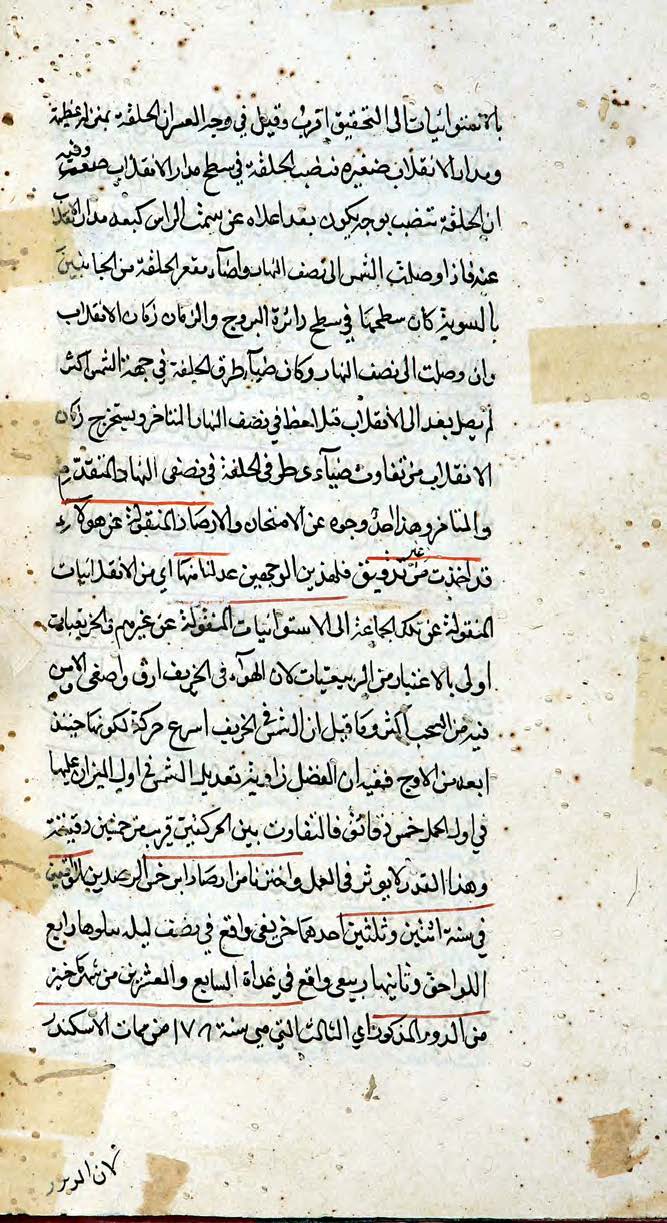 بالاستوائيات الى التحقيق اقرب وقيل في وجه العسر ان الحلقة بمنزلة عظيمة
ومدار الانقلاب صغيره فنصب الحلقة في سطح مدار الانقلاب صعب وفيه
ان الحلقة تنصب بوجه يكون بعد اعلاه عن سمت الراس كبعد مدار الانقلاب
عنه فاذا وصلت الشمس الى نصف النهار واضاء مقعر الحلقة من الجانبين
بالسوية كان سطحها في سطح دائرة البروج والزمان زمان الانقلاب
وان وصلت الى نصف النهار وكان ضياء طرف الحلقة في جهة الشمس اكثر
لم يصل بعد الى الانقلاب فيلاحظ في نصف النهار المتاخر ويستخرج زمان
الانقلاب من تفاوت ضياءى طرفي الحلقة في نصفي النهار المتقدم
والمتاخر وهذا احد وجوه عن الامتحان والارصاد المنقولة عن هولاء
قد اخذت من غير تدقيق فلهذين الوجهين عدلنا منها اي من الانقلابيات
المنقولة عن تلك الجماعة الى الاستوائيات المنقولة عن غيرهم والخريفيات
اولى بالاعتبار من الربيعيات لان الهواء في الخريف ارق واصفى والامن
فيه من السحب اكثر وما قيل ان الشمس في الخريف اسرع حركة لكونها حينئذ
ابعد من الاوج ففيه ان الفضل زاوية تعديل الشمس في اول الميزان عليها
في اول الحمل خمس دقائق فالتفاوت بين الحركتين قريب من خمسين دقيقة
وهذا القدر لا يوثر في العمل واخترنا من ارصاد ابرخس الرصدين الواقعين
في سنة اثنين وثلثين احدهما خريفي واقع في نصف ليلة يتلوها رابع
اللواحق وثانيها ربيعي واقع في غداة السابع والعشرين من شهر ماخير
من الدور المذكور اي الثالث التي هي سنة ١٧٨ من ممات الاسكندر
لان الدور